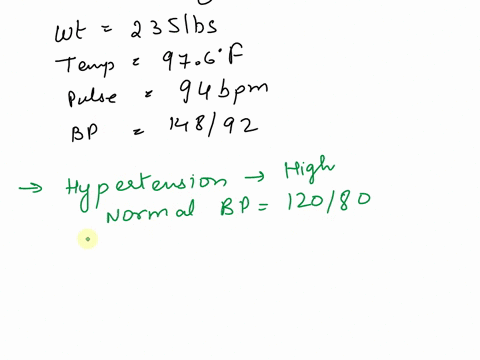 Wt = 235lbs
Temp = 97.6°F
Pulse = 94bpm
BP = 148/92
→ Hypertension → High
Normal BP = 120/80